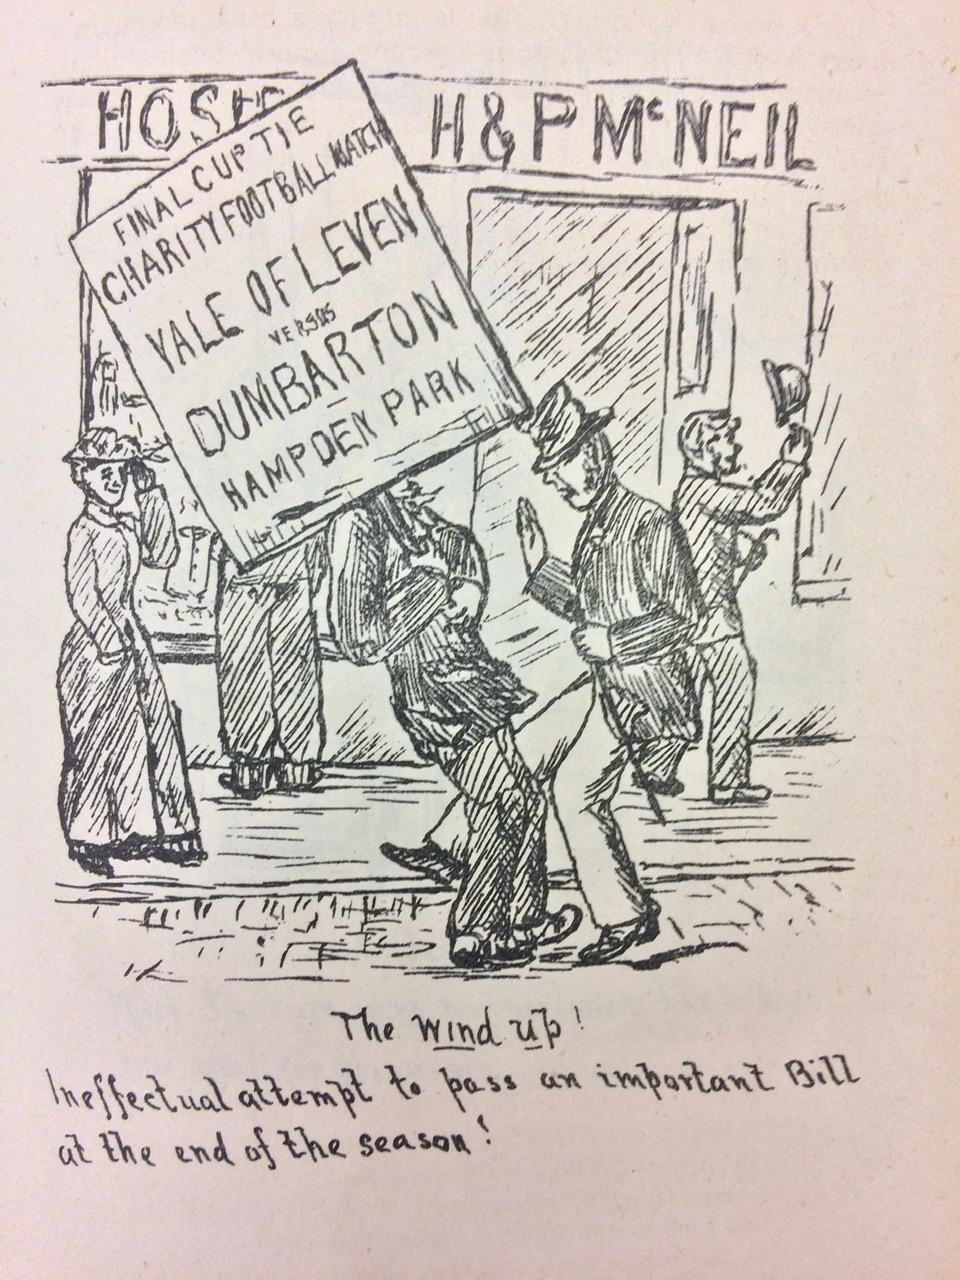 HOSIE H & P McNEIL
FINAL CUP TIE
CHARITY FOOTBALL MATCH
VALE OF LEVEN
VERSUS
DUMBARTON
HAMPDEN PARK
The Wind up!
Ineffectual attempt to pass an important Bill
at the end of the season!